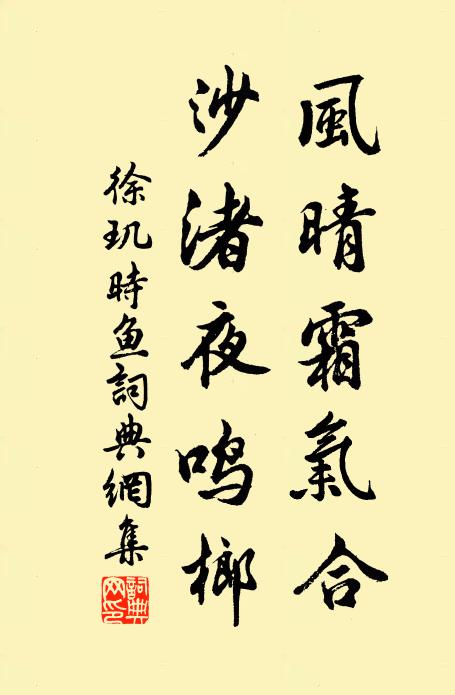 風晴霜氣合
沙渚夜鳴榔
徐玑時魚詞典網集